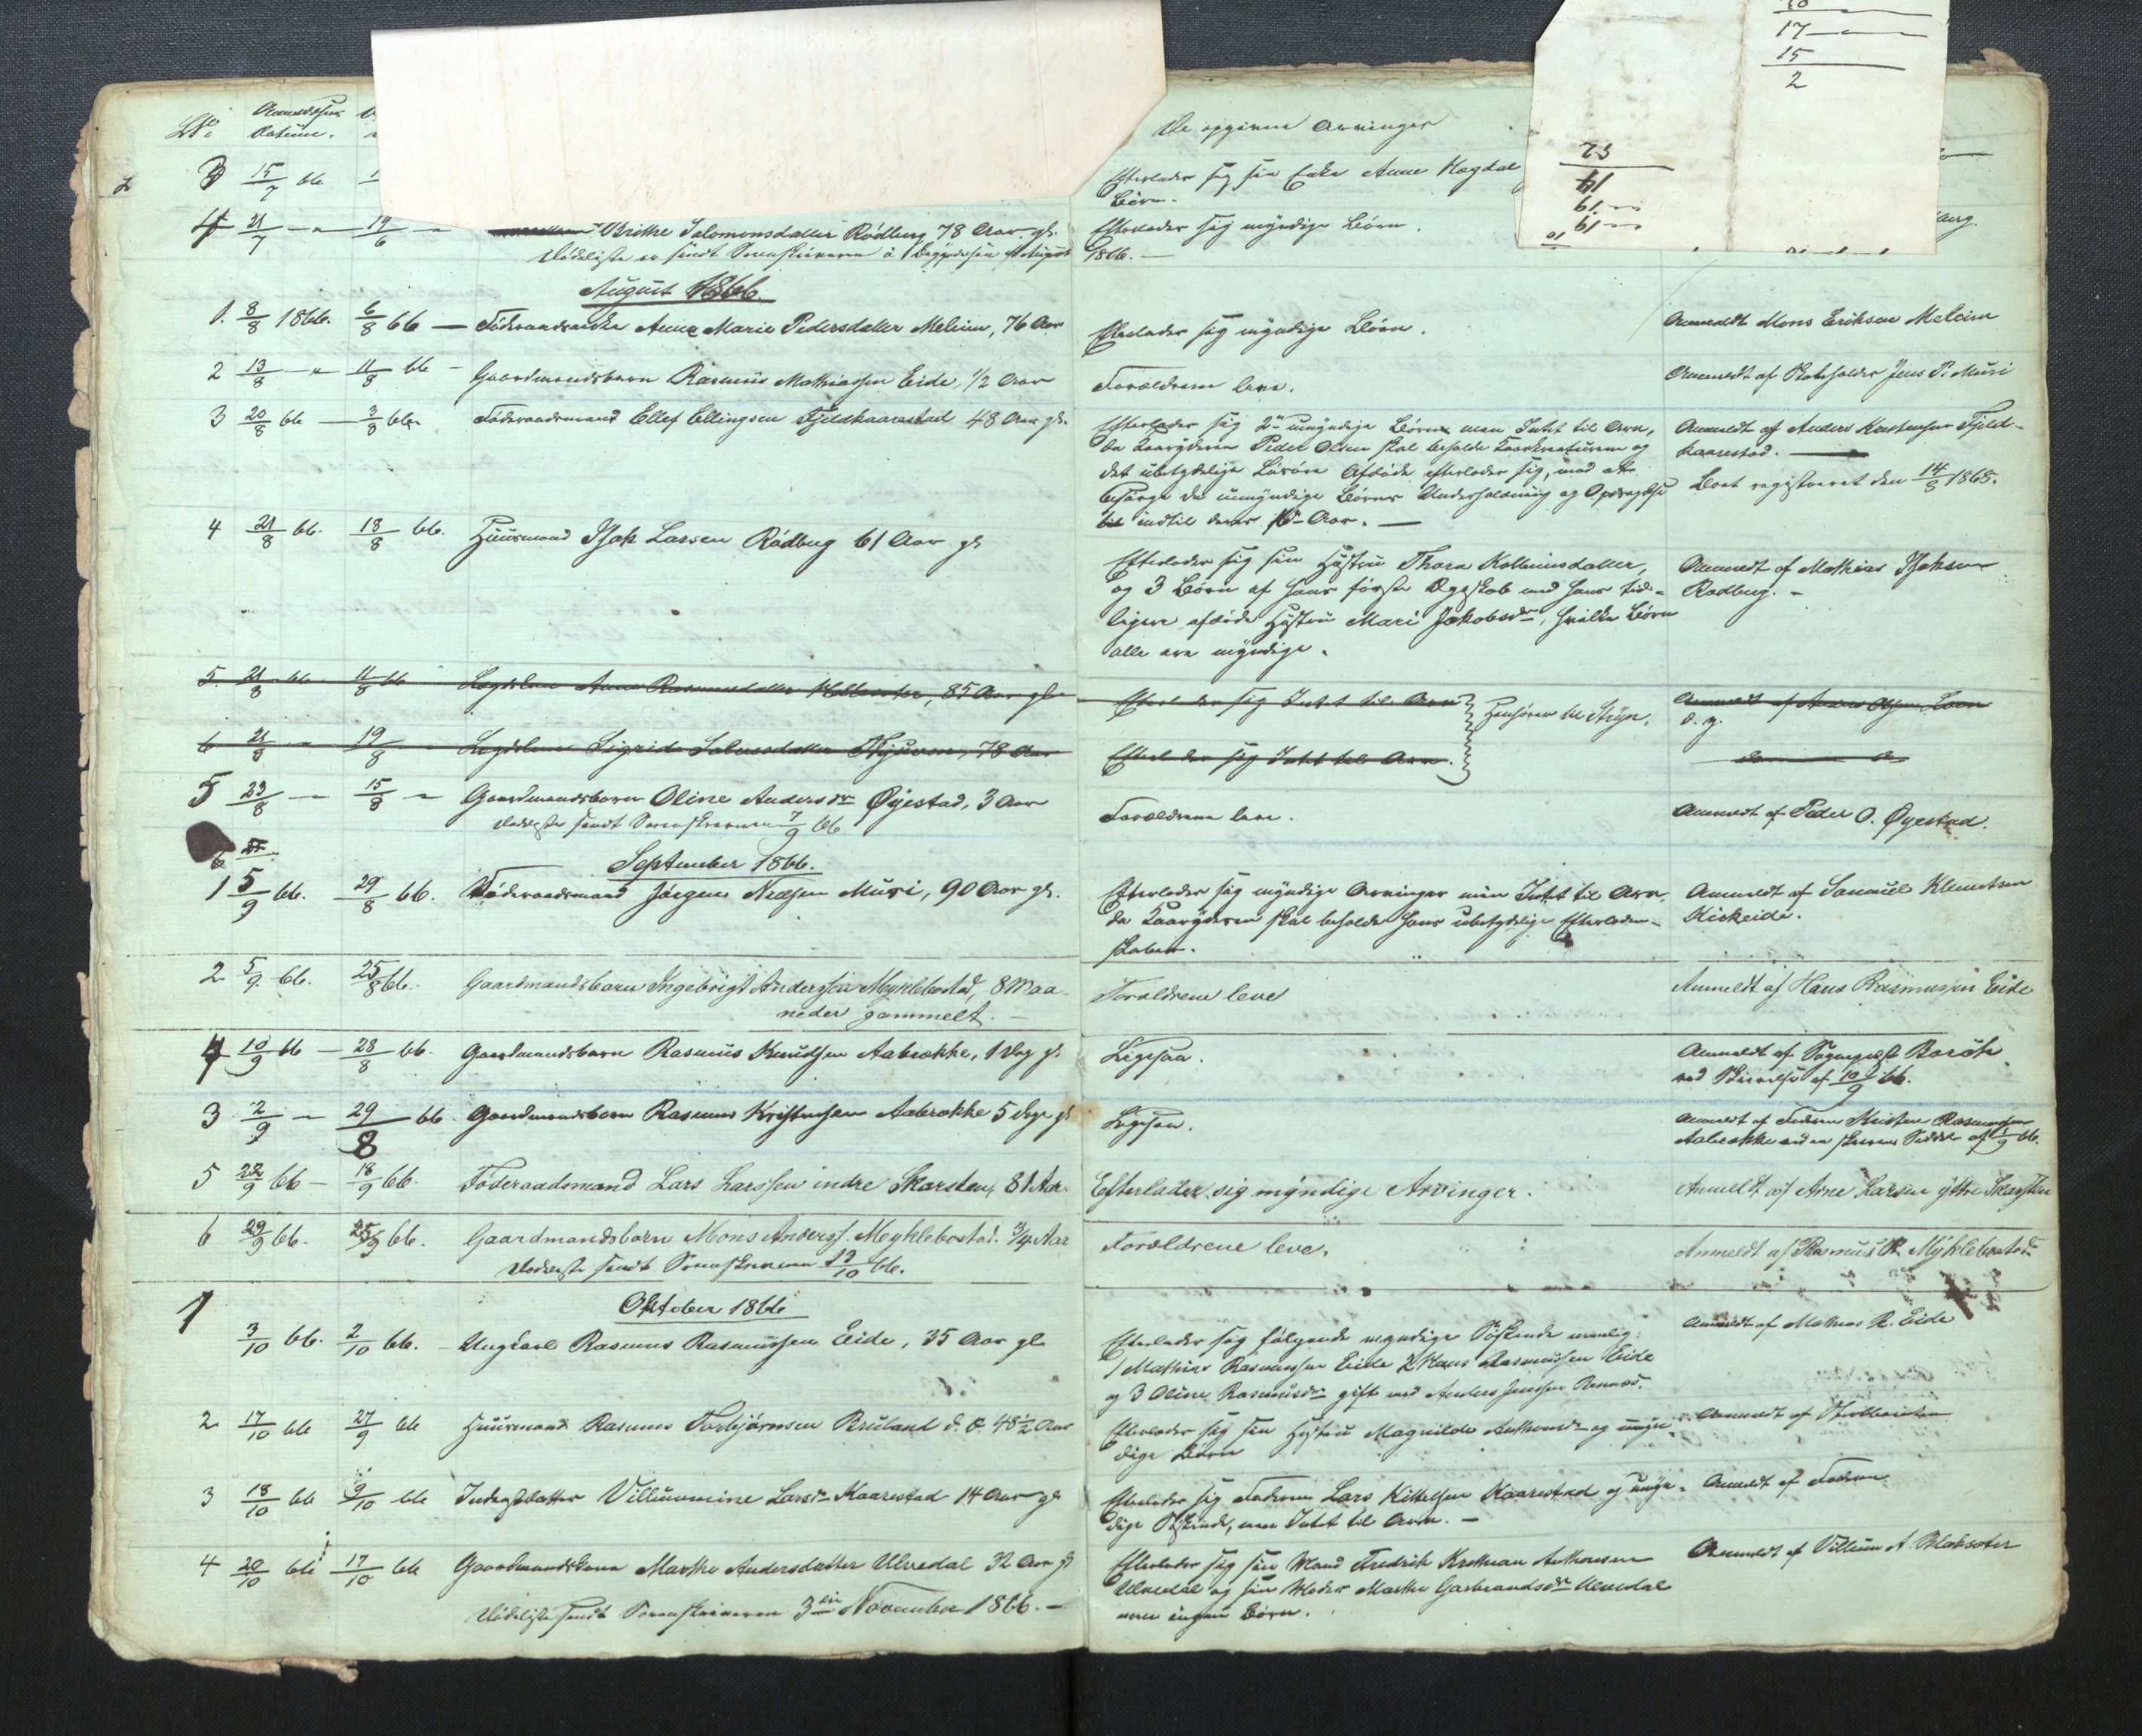 LNo Anmeldelsens Datum. De opgivne Arvinger
3 15/7 66 Efterlader sig sin Enke Anne Magdal
Børn.
4 21/7 — " — 19/6 — Ulrikke Salomonsdatter Rødberg 78 Aar gl. Efterlader sig myndige Børn. berg.
Dødsliste er sendt Sorenskriveren i Begyndelsen af August 1866. —
August 1866.
1. 8/8 1866. 6/8 66 — Føderaadsenke Anne Marie Pedersdatter Melheim, 76 Aar Efterlader sig myndige Børn. Anmeldt Mons Eriksen Melheim
2 13/8 — " — 11/8 66 — Gaardmandsbarn Rasmus Mathiassen Eide, 1/2 Aar Forældrene leve. Anmeldt af Jens P. Muri
3 20/8 66 — 3/8 66. Føderaadsmand Ellef Ellingsen Fjeldkaarestad 48 Aar gl. Efterlader sig 2 umyndige Børn men Intet til Arv, Anmeldt af Anders Fjeld-
da Kaaryderen Peder Olsen skal beholde Kaarkreaturene og kaarestad. —
det ubetydelige Løsøre Afdøde efterlader sig, mod at
besørge de umyndige Børns Underholdning og Opdragelse Boet registreret den 14/8 1865.
indtil deres Aar. —
4 21/8 66. 18/8 66. Huusmand Isak Larsen Rødberg 61 Aar gl
Efterlader sig sin Hustru Thora Kolbeinsdatter, Anmeldt af Mathias Isaksen
og 3 Børn af hans første Ægteskab med hans tid- Rødberg. —
ligere afdøde Hustru Mari Jakobsdr, hvilke Børn
alle ere myndige.
5. 21/8 66 11/8 66 Lægdslem Anne Rasmusdatter, 85 Aar gl Efterlader sig Intet til Arv Henhører til Stryn. Anmeldt af Anders Loen
d. y.
6 21/8 — " 19/8 Lægdslem Sigrid, 78 Aar Efterlader sig Intet til Arv.
5 23/8 — 15/8 — Gaardmandsbarn Oline Andersdr Øyestad, 3 Aar Forældrene leve. Anmeldt af Peder O. Øyestad.
Dødsliste sendt Sorenskriveren 7/9 66
6
September 1866.
1 5/9 66. 29/8 66. Føderaadsmand Jørgen Nedsen Muri, 90 Aar gl. Efterlader sig myndige Arvinger men Intet til Arv, Anmeldt af Samuel Klaudsen
da Kaaryderen skal beholde hans ubetydelige Efterladen- Kirkeide.
skaber.
2 5/9. 66. 25/8 66. Gaardmandsbarn Ingebrigt Anderssen Myklebostad, 8 Maa- Forældrene leve Anmeldt af Hans Rasmussen Eide
neder gammelt. —
4 10/9 66 — 28/8 66. Gaardmandsbarn Rasmus Knudsen Aabrække, 1 Dag gl. Ligesaa. Anmeldt af Sognepræst
ved Skrivelse af 10/9 66.
3 2/9 — 29/8 66. Gaardmandsbarn Rasmus Kristensen Aabrække 5 Dage gl Ligesaa. Anmeldt af Faderen Kristen Rasmussen
Aabrække ved en skreven Seddel af 1/9 66.
5 22/9 66 — 18/9 66. Føderaadsmand Lars Larssen indre Skarsten, 81 Aar. Efterlader sig myndige Arvinger. Anmeldt af Arne Larsen ytre Skarsten
6 29/9 66. 25/9 66. Gaardmandsbarn Mons Anderss. Myklebostad. 3/4 Aar Forældrene leve. Anmeldt af Rasmus R. Myklebostad
Dødsliste sendt Sorenskriveren 12/10 66.
Oktober 1866
1 3/10 66. 2/10 66. — Ungkarl Rasmus Rasmussen Eide, 35 Aar gl. Efterlader sig følgende myndige Søskende nemlig: Anmeldt af Mathias R. Eide
1 Mathias Rasmussen Eide 2 Hans Rasmussen Eide
og 3 Oline Rasmusdr gift med Anders Jenssen
2. 17/10 66 27/9 66 Huusmand Rasmus Torbjørnsen Bruland d. æ. 48 1/2 Aar Efterlader sig sin Hustru Magnilde Anthonsdr og umyn- Anmeldt af
dige Børn
3 18/10 66 9/10 66 Inderstdatter Villumine Larsdr Kaarestad 14 Aar gl Efterlader sig Faderen Lars Kittelsen Kaarestad og umyn- Anmeldt af Faderen
dige Søskende, men Intet til Arv. —
4 20/10 66 17/10 66 Gaardmandskone Marthe Andersdatter Ulvedal 32 Aar gl Efterlader sig sin Mand Fredrik Kristian Anthonsen Anmeldt af Villum A. Blaksæter
Ulvedal og sin Moder Marthe Gerbrandsdr Ulvedal
Dødsliste sendt Sorenskriveren 3die November 1866. — men ingen Børn.
17
15
2
23
19
19